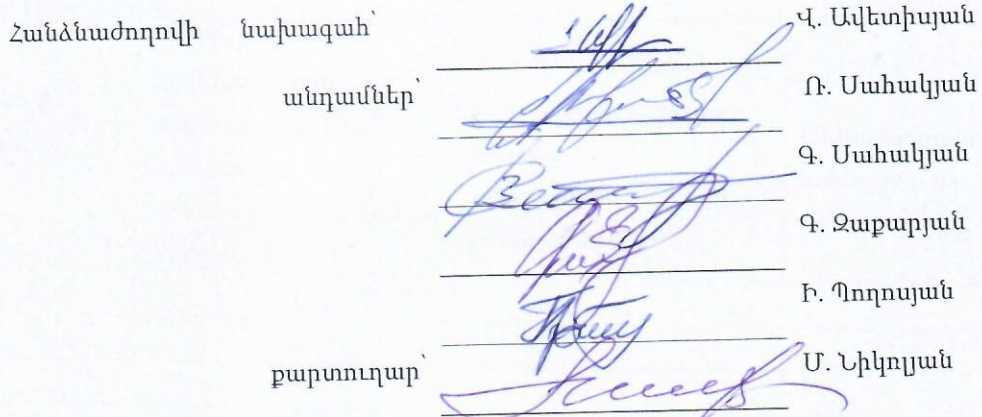 Հանձնաժողովի նախագահ՝ Վ. Ավետիսյան
անդամներ՝ Ռ. Սահակյան
Գ. Սահակյան
Գ. Զաքարյան
Ի. Պողոսյան
քարտուղար՝ Մ. Նիկոլյան